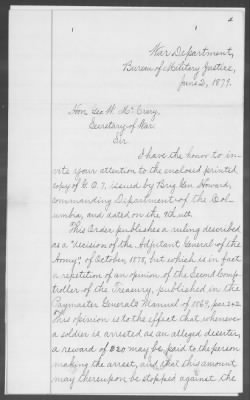 War Department,
Bureau of Military Justice,
June 2, 1879.
Hon. Geo. W. McCrary,
Secretary of War.
Sir:
I have the honor to in-
vite your attention to the enclosed printed
copy of G. O. 7, issued by Brig. Gen. Howard,
commanding Department of the Col-
umbia, and dated on the 9th ult.
This Order publishes a ruling described
as a "decision of the Adjutant General of the
Army" of October, 1878, but which is in fact
a repetition of an opinion of the Second Comp-
troller of the Treasury, published in the
Paymaster General's Manual of 1869, par. 242.
This opinion is to the effect that whenever
a soldier is arrested as an alleged deserter,
a reward of $20 may be paid to the person
making the arrest, and that this amount
may thereupon be stopped against the